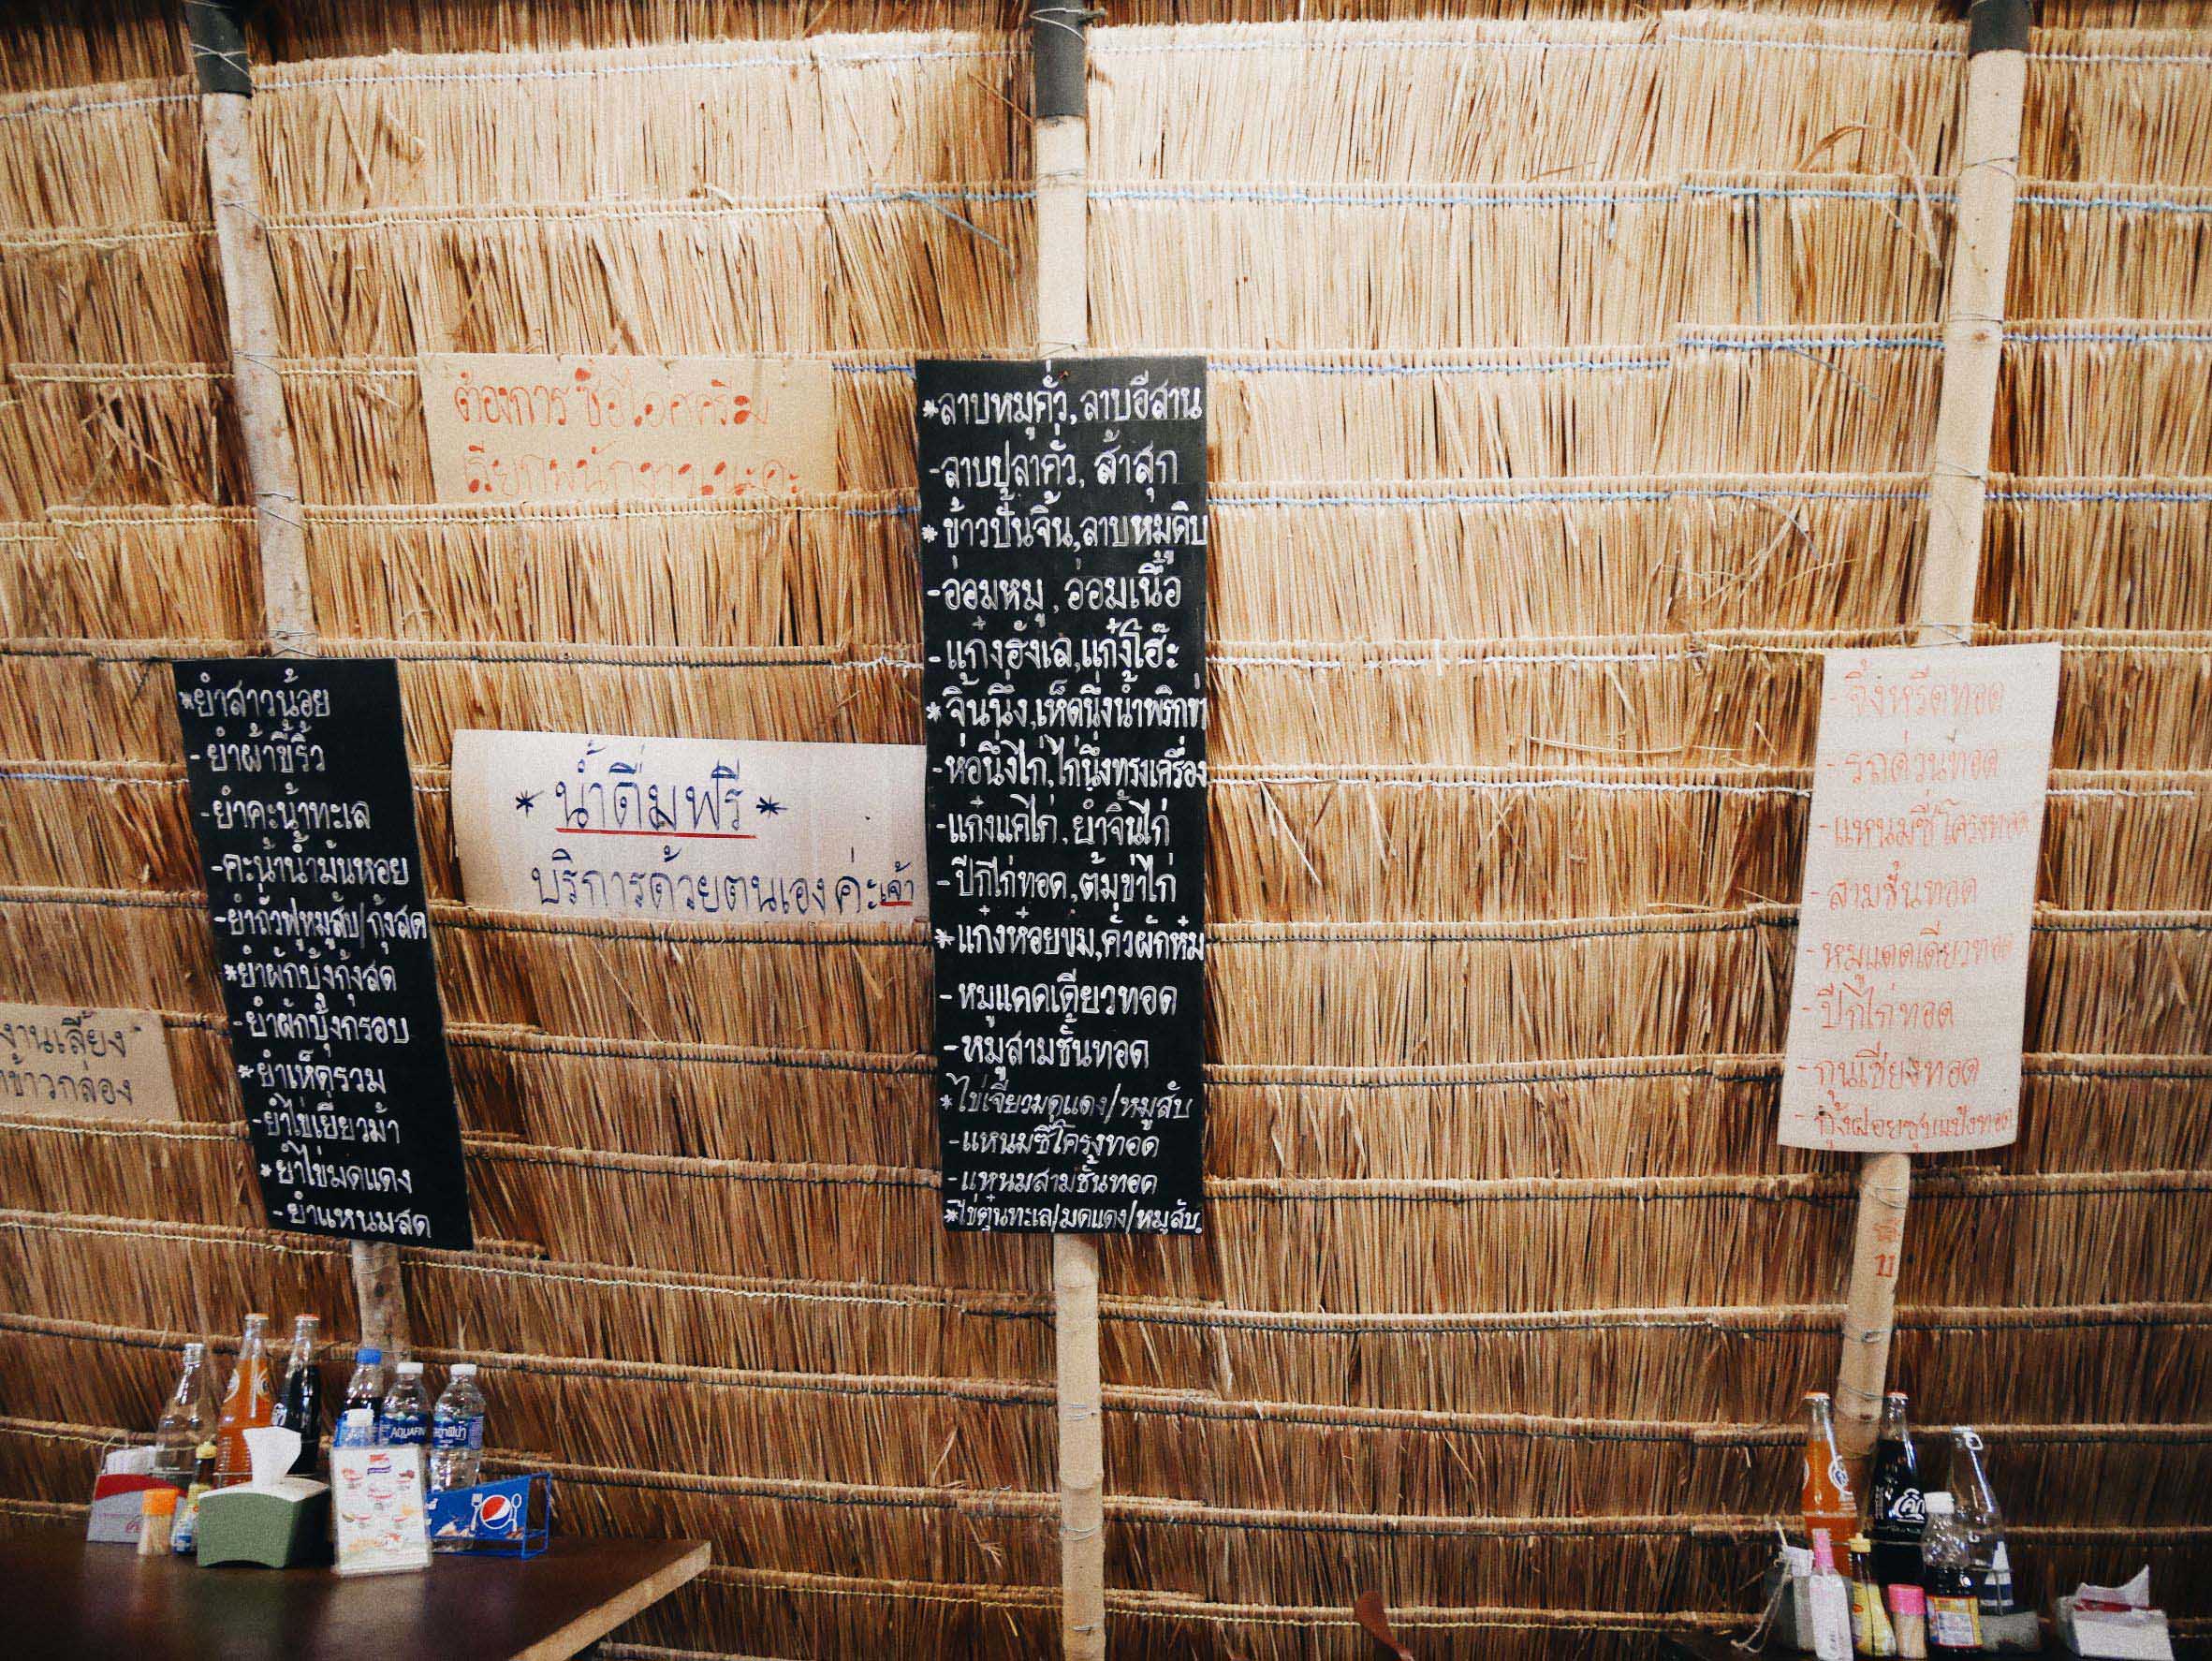 ต้องการซื้อไอศครีม
เรียกพนักงานนะคะ
*ยำสาวน้อย
-ยำผ้าขี้ริ้ว
-ยำคะน้าทะเล
-คะน้าน้ำมันหอย
-ยำถั่วพูหมูสับ/กุ้งสด
*ยำผักบุ้งกุ้งสด
-ยำผักบุ้งกรอบ
*ยำเห็ดรวม
-ยำไข่เยี่ยวม้า
*ยำไข่มดแดง
-ยำแหนมสด
* น้ำดื่มฟรี *
บริการด้วยตนเองค่ะเจ้า
งานเลี้ยง
ข้าวกล่อง
*ลาบหมูคั่ว,ลาบอีสาน
-ลาบปลาคั่ว, ส้าสุก
*ข้าวปั้นจิ้น,ลาบหมูดิบ
-อ่อมหมู, อ่อมเนื้อ
-แก๋งฮังเล,แก๋งโฮ๊ะ
*จิ้นนึ่ง,เห็ดนึ่งน้ำพริกข่า
-ห่อนึ่งไก่,ไก่นึ่งทรงเครื่อง
-แก๋งแคไก่, ยำจิ้นไก่
-ปีกไก่ทอด,ต้มข่าไก่
*แก๋งหอยขม,คั่วผักหัม
-หมูแดดเดียวทอด
-หมูสามชั้นทอด
*ไข่เจียวมดแดง/หมูสับ
-แหนมซี่โครงทอด
-แหนมสามชั้นทอด
*ไข่ตุ๋นทะเล/มดแดง/หมูสับ
-จิ้งหรีดทอด
-รถด่วนทอด
-แหนมซี่โครงทอด
-สามชั้นทอด
-หมูแดดเดียวทอด
-ปีกไก่ทอด
-กุนเชียงทอด
-กุ้งฝอยชุบแป้งทอด
AQUAFINA
น้ำ